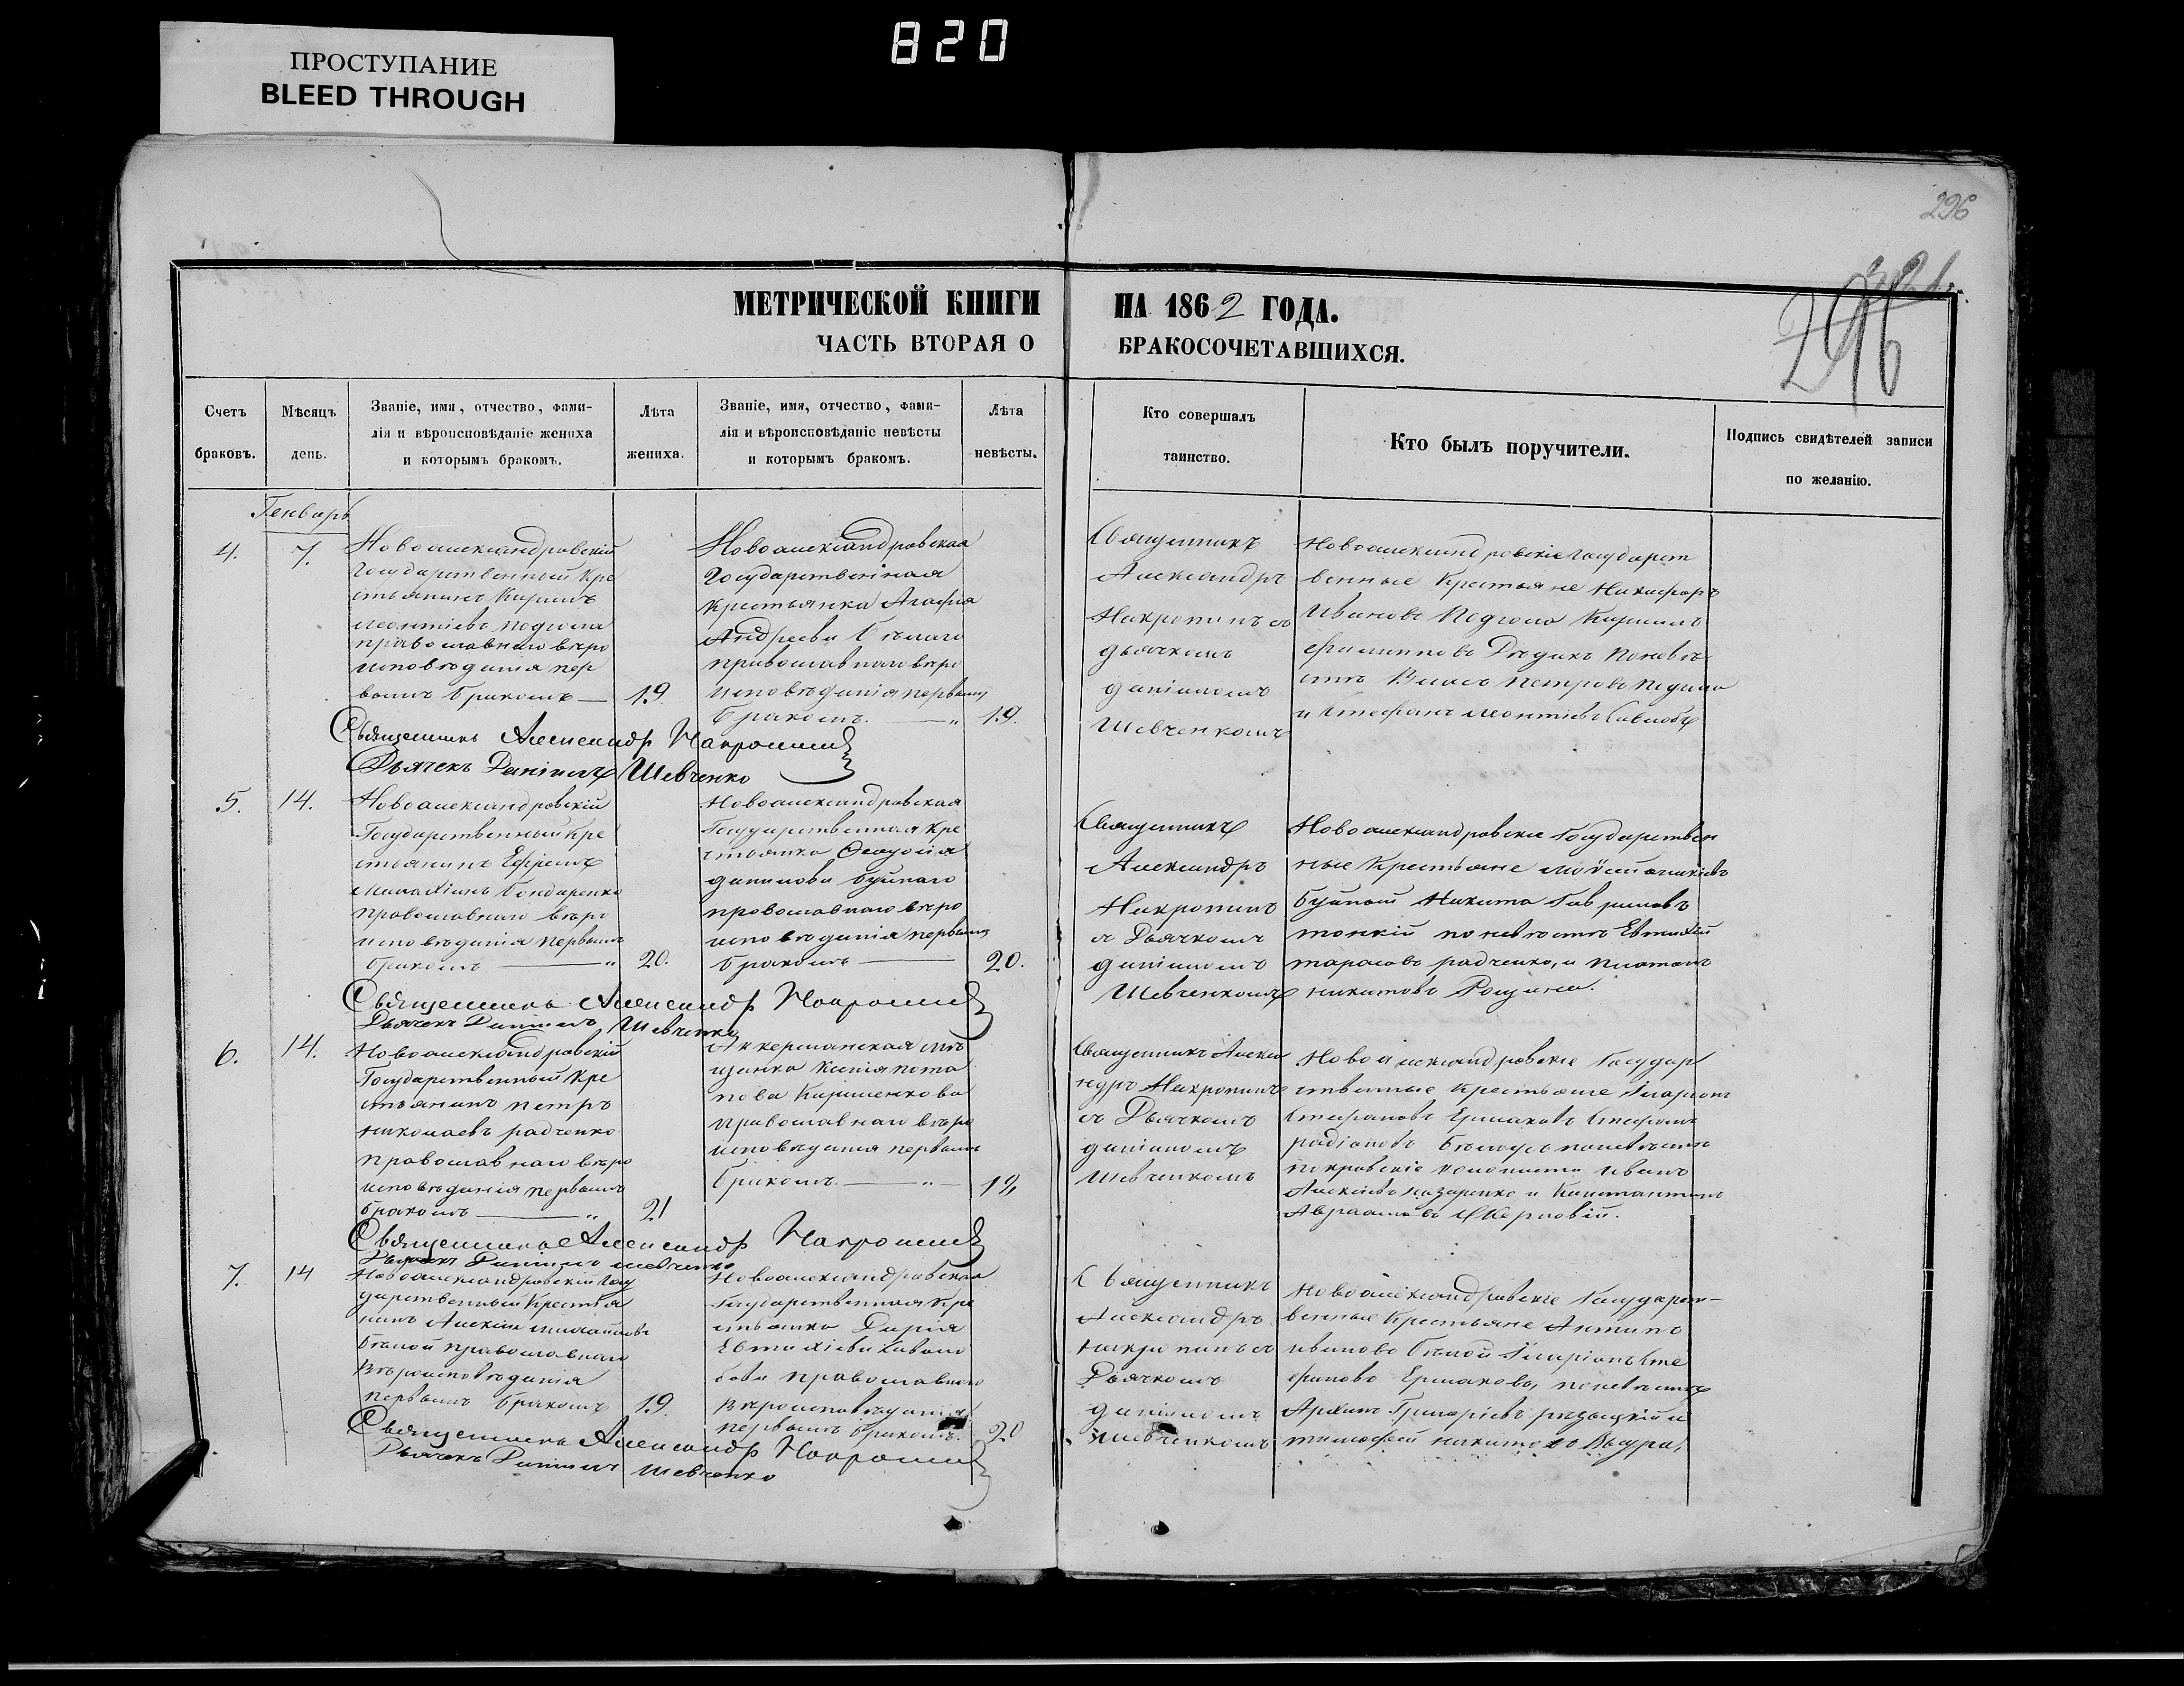 820
ПРОСТУПАНИЕ
BLEED THROUGH
296
321.
296
МЕТРИЧЕСКОЙ КНИГИ НА 1862 ГОДА.
ЧАСТЬ ВТОРАЯ О БРАКОСОЧЕТАВШИХСЯ.
Счетъ
браковъ.
Мѣсяцъ
день.
Званіе, имя, отчество, фами-
лія и вѣроисповѣданіе жениха
и которымъ бракомъ.
Лѣта
жениха.
Званіе, имя, отчество, фами-
лія и вѣроисповѣданіе невѣсты
и которымъ бракомъ.
Лѣта
невѣсты.
Кто совершалъ
таинство.
Кто былъ поручители.
Подпись свидѣтелей записи
по желанію.
Генварь
4.
7.
Новоалександровскій
Государственный Кре
стьянинъ Кирилъ
леонтіевъ
православнаго вѣро
исповѣданія пер
вымъ бракомъ —
19.
Новоалександровская
Государственная
крестьянка Агафія
Андреева Бѣлаго
православнаго вѣро
исповѣданія первымъ
бракомъ. — „
19.
Священникъ
Александръ
Накропинъ съ
дьячкомъ
даніиломъ
Шевченкомъ
Новоалександровскіе государст
венные Крестьяне Никифоръ
Ивановъ Кирилъ
филипповъ Дѣдикъ по невѣ
стѣ Власъ петровъ
и Стефанъ леонтіевъ
Священникъ Александръ Накропинъ
Дьячекъ Даніилъ Шевченко
5.
14.
Новоалександровскій
Государственный Кре
стьянинъ Ефремъ
Бондаренко
православнаго вѣро
исповѣданія первымъ
бракомъ — „
20.
Новоалександровская
Государственная Кре
стьянка Феодосія
данилова буйнаго
православнаго вѣро
исповѣданія первымъ
бракомъ —
20.
Священникъ
Александръ
Накропинъ
съ Дьячкомъ
даніиломъ
Шевченкомъ
Новоалександровскіе Государствен
ные Крестьяне
буйный Никита Гавриловъ
тонкій по невѣстѣ Евтихій
тарасовъ радченко, и платонъ
никитовъ
Священникъ Александръ Накропинъ
Дьячекъ Даніилъ Шевченко
6.
14.
Новоалександровскій
Государственный Кре
стьянинъ петръ
николаевъ радченко
православнаго вѣро
исповѣданія первымъ
бракомъ — „
21
Аккерманская мѣ
щанка Ксенія пота
пова Кириленкова
православнаго вѣро
исповѣданія первымъ
бракомъ. — „ —
Священникъ Алекса
ндръ Накропинъ
съ Дьячкомъ
даніиломъ
Шевченкомъ
Новоалександровскіе Государ
ственные Крестьяне Иларіонъ
Стефановъ Ермаковъ Стефанъ
радіоновъ Бѣлоусъ по невѣстѣ
покровскіе колонисты Иванъ
Алексіевъ назаренко и Константинъ
Авраамовъ
Священникъ Александръ Накропинъ
Дьячекъ Даніилъ Шевченко
7.
14
Новоалександровскій Госу
дарственный Крестья
нинъ Алексій михайловъ
бѣлой православнаго
вѣроисповѣданія
первымъ бракомъ
19.
Новоалександровская
Государственная Кре
стьянка Дарія
Евтихіева
православнаго
вѣроисповѣданія
первымъ бракомъ.
20
Священникъ
Александръ
накропинъ съ
Дьячкомъ
даніиломъ
Шевченкомъ
Новоалександровскіе Государст-
венные Крестьяне Антипъ
ивановъ бѣлой Иларіонъ Сте
фановъ Ермаковъ, по невѣстѣ
Архипъ Григоріевъ и
тимофей никитовъ
Священникъ Александръ Накропинъ
Дьячекъ Даніилъ Шевченко